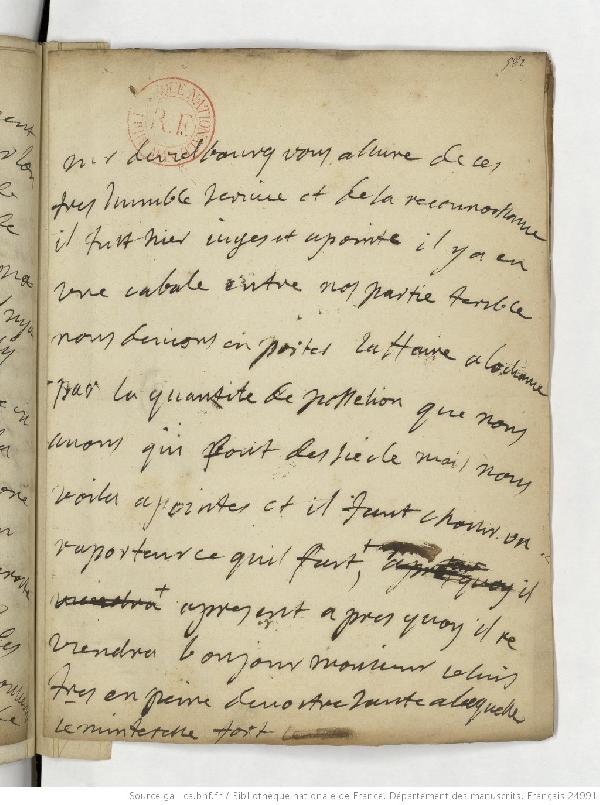 582
BIBLIOTHEQUE NATIONALE
R.F.
mr deuielbourg vous assure de ces
tres humble seruice et de la reconnoissance
il fust hier iuges et apointe il y a eu
vne cabale entre nos partie terrible
nous deuions en porter laffaire a lodiance
par la quantite de possesion que nous
auons qui sont des siecle mais nous
voila apointes et il faut choisir vn
raporteur ce quil fait, apres quoy il
viendra apresent apres quoy il re
viendra bonjour monsieur ie suis
tres en peine de vostre sante a laquelle
ie minteresse fort
Source gallica.bnf.fr / Bibliothèque nationale de France. Département des manuscrits. Français 24991